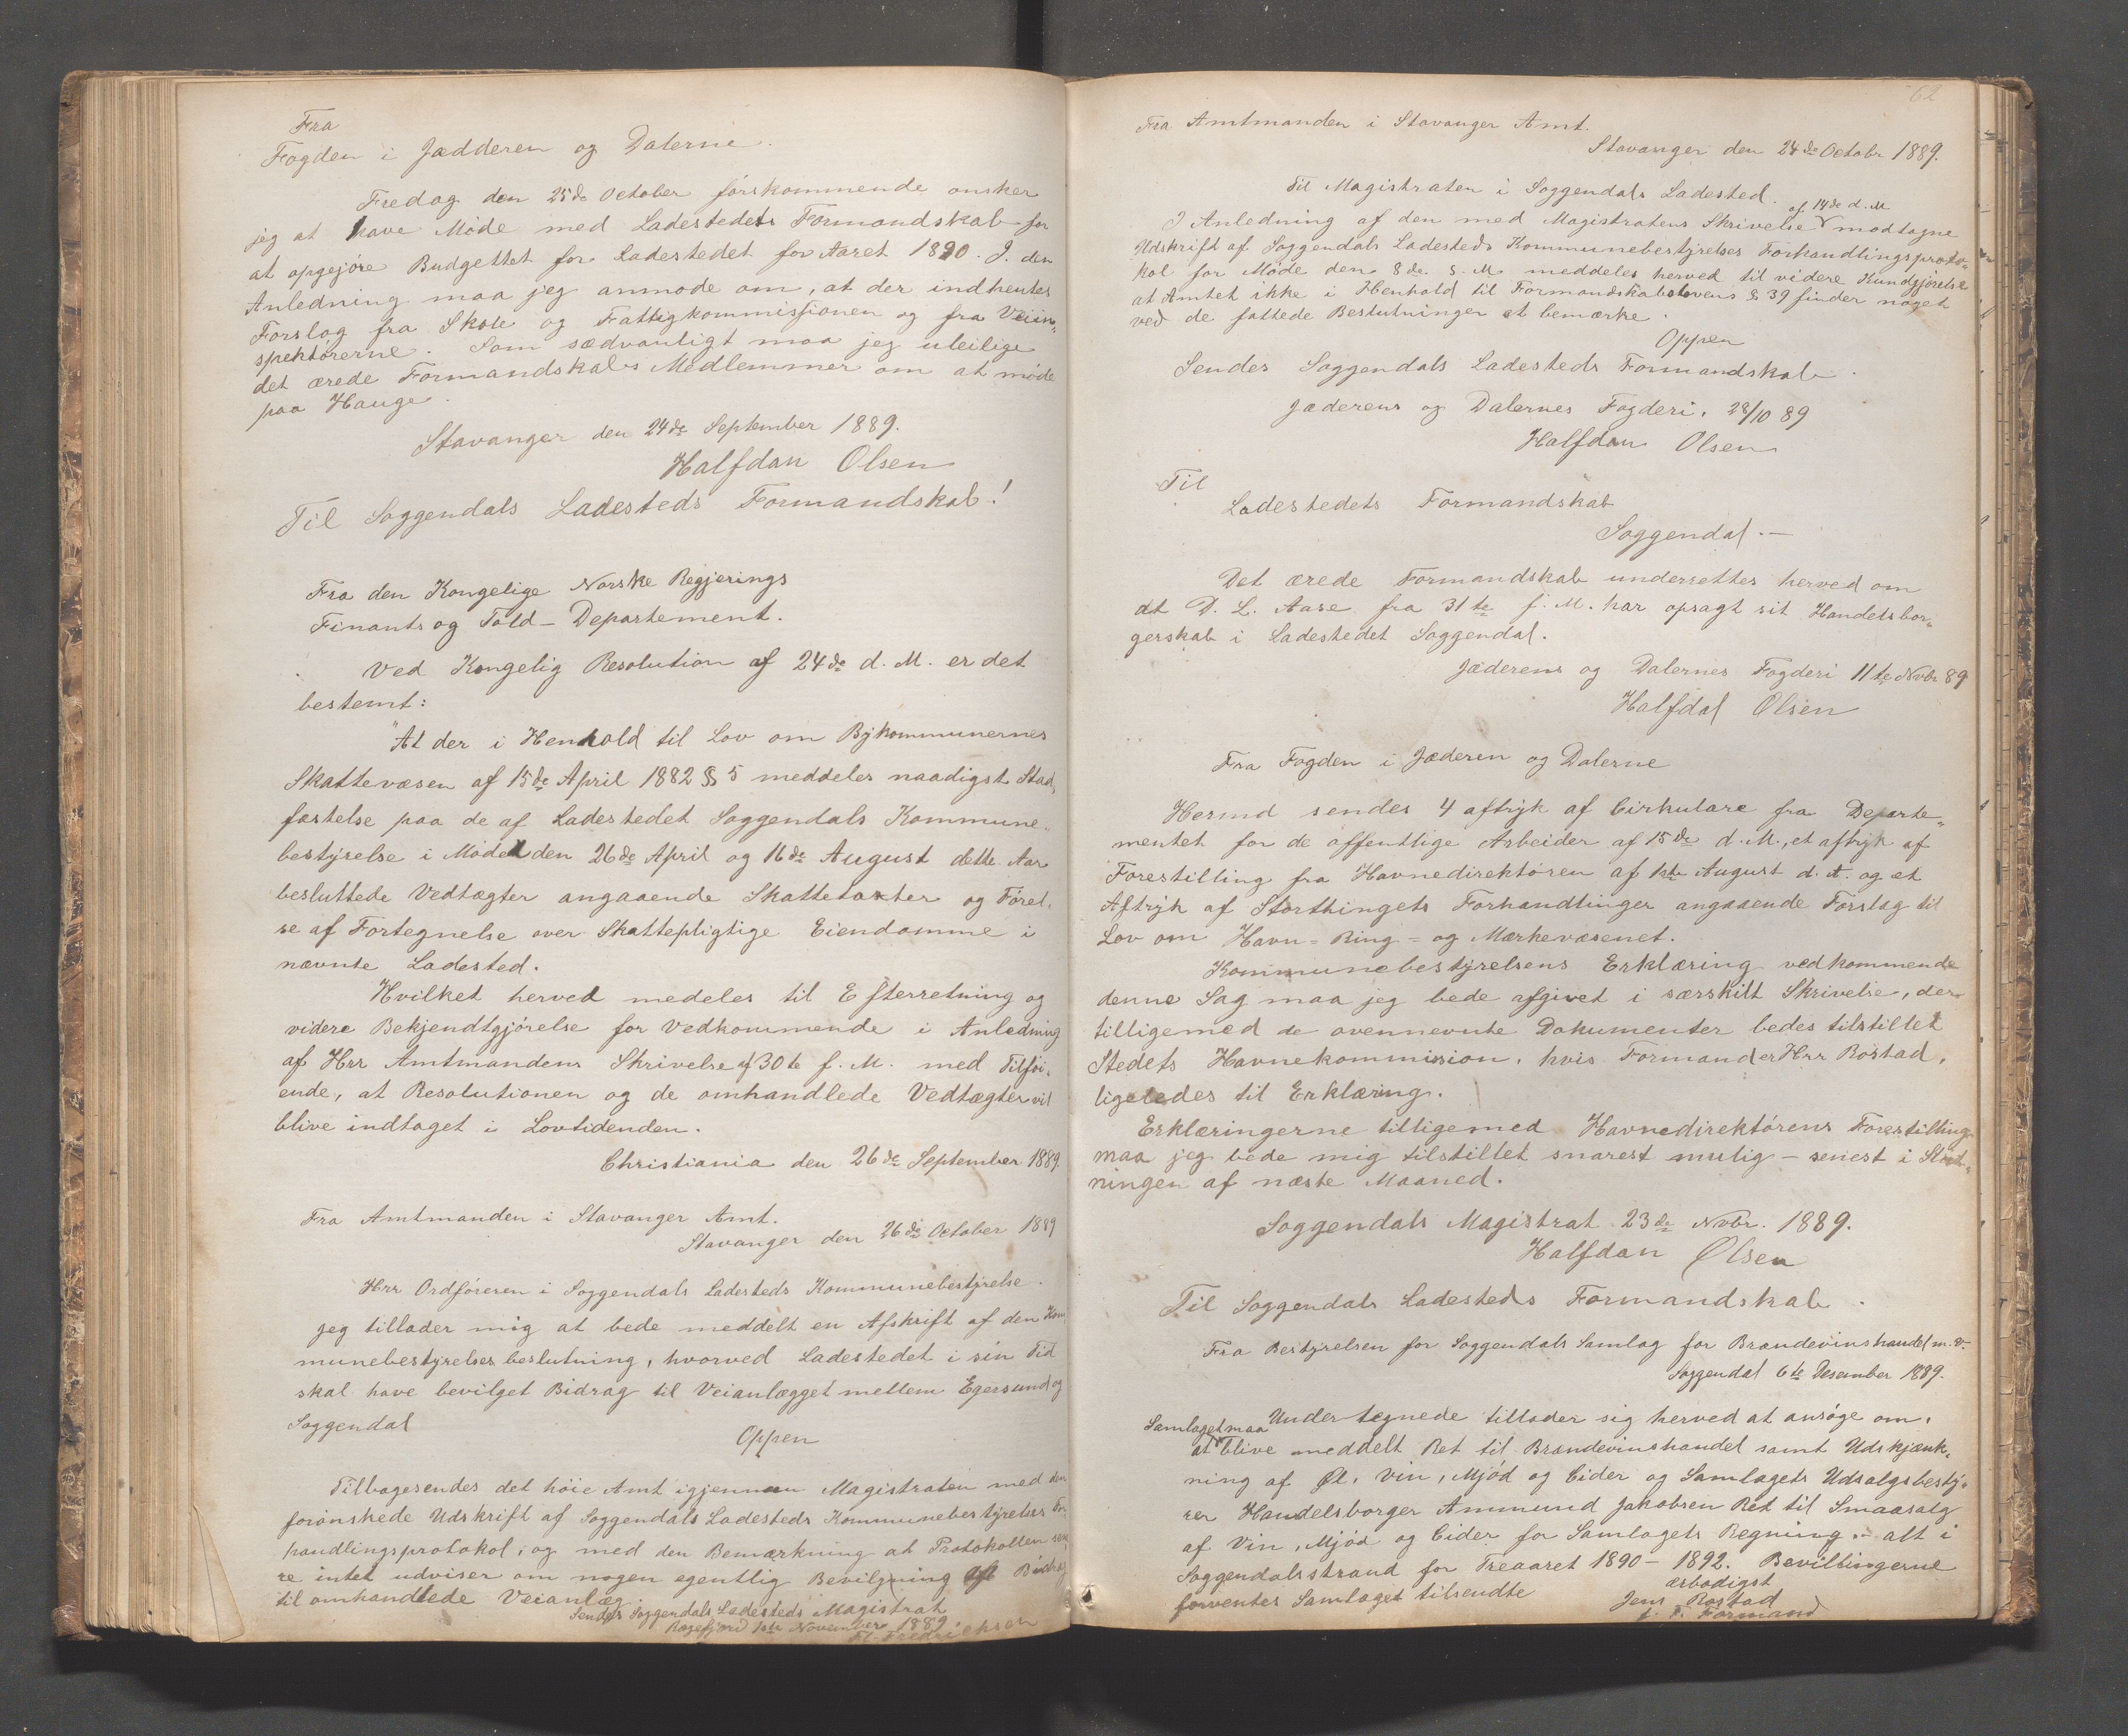 Fra
Fogden i Jædderen og Dalerne.
Fredag den 25de October førskommende ønsker
jeg at have Møde med Ladestedets Formandskab for
at opgejöre Budgettet for Ladestedet for Aaret 1890. I den
Anledning maa jeg anmode om, at der indhentes
Forslag fra Skole og Fattigkommissionen og fra Veiin-
spektörerne. Som sædvanligt maa jeg uleilige
det ærede Formandskabs Medlemmer om at møde
paa Hauge.
Stavanger den 24de September 1889.
Halfdan Olsen
Til Soggendals Ladesteds Formandskab!
Fra den Kongelige Norske Regjerings
Finants og Told-Departement.
Ved Kongelig Resolution af 24de d. M. er det
bestemt:
"At der i Henhold til Lov om Bykommunernes
Skattevæsen af 15de April 1882 § 5 meddeles naadigst Stad-
fæstelse paa de af Ladestedet Soggendals Kommune-
bestyrelse i Møde den 26de April og 16de August dette Aar
besluttede Vedtægter angaaende Skattetaxter og Førel-
se af Fortegnelse over Skattepligtige Eiendomme i
nævnte Ladested.
Hvilket herved medeles til Efterretning og
videre Bekjendtgjörelse for Vedkommende i Anledning
af Hrr Amtmandens Skrivelse af 30te f. M. med Tilföi-
ende, at Resolutionen og de omhandlede Vedtægter vil
blive indtaget i Lovtidenden.
Christiania den 26de September 1889
Fra Amtmanden i Stavanger Amt.
Stavanger den 26de October 1889
Hrr Ordföreren i Soggendals Ladesteds Kommunebestyrelse.
Jeg tillader mig at bede meddelt en Afskrift af den Kom
munebestyrelses beslutning, hvorved Ladestedet i sin Tid
skal have bevilget Bidrag til Veianlægget mellem Egersund og
Soggendal
Oppen
Tilbagesendes det höie Amt igjennem Magistraten med den
forönskede Udskrift af Soggendals Ladesteds Kommunebestyrelses For-
handlingsprotokol, og med den Bemærkning at Protokollen
re intet udviser om nogen egentlig Bevilgning Bidrag
til omhandlede Veianlæg.
Sendes Soggendals Ladesteds Magistrat
Rægefjord 1ste November 1889
Fr. Fredrichsen
62
Fra Amtmanden i Stavanger Amt.
Stavanger den 24de Octobr 1889.
Til Magistraten i Soggendals Ladested.
af 14de d. M
I Anledning af den med Magistratens Skrivelse modtagne
Udskrift af Soggendals Ladesteds Kommunebestyrelses Forhandlingsproto-
kol for Møde den 8de s. M. meddeles herved til videre Kundgjörelse
at Amtet ikke i Henhold til Formandskabslovens § 39 finder noget
ved de fattede Beslutninger at bemærke.
Oppen
Sendes Soggendals Ladesteds Formandskab.
Jæderens og Dalernes Fogderi, 28/10 89
Halfdan Olsen
Til
Ladestedets Formandskab
Soggendal.-
Det ærede Formandskab underrettes herved om
at D. L. Aase fra 31te f. M. har opsagt sit Handelsbor-
gerskab i Ladestedet Soggendal.
Jæderens og Dalernes Fogderi 11te Nvbr 89
Halfdal Olsen
Fra Fogden i Jæderen og Dalerne
Hermd sendes 4 aftryk af Cirkulære fra Departe-
mentet for de offentlige Arbeider af 15de d. M., et aftryk af
Forestilling fra Havnedirektøren af 1ste August d. A. og et
Aftryk af Storthingets Forhandlinger angaaende Forslag til
Lov om Havn- Ring- og Mærkevæsenet.
Kommunebestyrelsens Erklæring vedkommende
denne Sag maa jeg bede afgivet i særskilt Skrivelse, der
tilligemed de ovennevnte Dokumenter bedes tilstillet
Stedets Havnekommission, hvis Formand er Hrr Rostad,
ligeledes til Erklæring.
Erklæringerne tilligemed Havnedirektörens Forestilling
maa jeg bede mig tilstillet snarest mulig - senest i Slut-
ningen af næste Maaned.
Soggendals Magistrat 23de Nvbr. 1889.
Halfdan Olsen
Til Soggendals Ladesteds Formandskab.
Fra Bestyrelsen for Soggendals Samlag for Brændevinshandel m. v.
Soggendal 6te Desember 1889.
Undertegnede tillader sig herved at ansöge om,
Samlaget maa
at blive meddelt Ret til Brændevinshandel samt Udskjænk-
ning af Øl, Vin, Mjød og Cider og Samlagets Udsalgsbesty-
rer Handelsborger Ammund Jakobsen Ret til Smaasalg
af Vin, Mjød og Cider for Samlagets Regning - alt i
Soggendalsstrand for Treaaret 1890 - 1892. Bevillingerne
forventes Samlaget tilsendte
ærbødigst
Jens Rostad
f. T. Formand